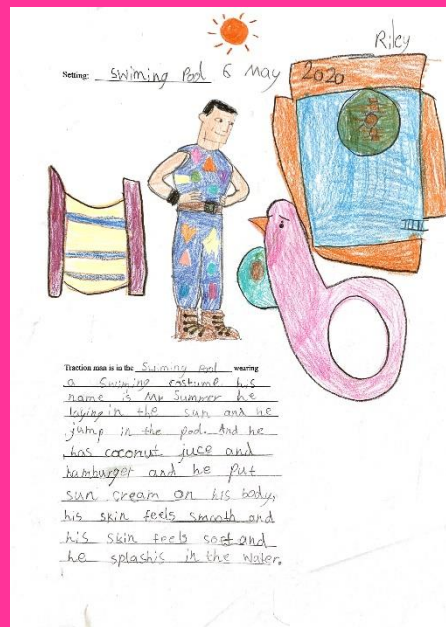 Riley
Setting: Swiming Pool 6 May 2020
Traction man is in the Swiming Pool wearing
a Swiming costume his
name is Mr Summer he
laying in the sun and he
jump in the pool. And he
has coconut juce and
hamburger and he put
sun cream on his body,
his skin feels smooth and
his skin feels soft and
he splashis in the water.